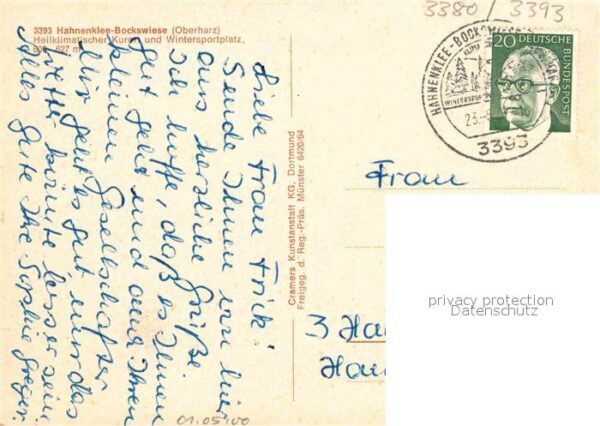 3380 / 3393
3293 Hahnenklee-Bockswiese (Oberharz)
Heilklimatischer Kurort und Wintersportplatz,
600 - 627 m
HAHNENKLEE-BOCKSWIESE
WINTERSPORT
23.
3393
20 DEUTSCHE
BUNDESPOST
Liebe Frau Frik!
Sende Ihnen von hier
aus herzliche Grüße
Ich hoffe, daß es Ihnen
gut geht und auch Ihren
kleinen Gesellschafter
Mir geht es gut nur das
Wetter könnte besser sein
Alles Gute Ihre Sophie
Cramers Kunstanstalt KG, Dortmund
Freigeg. d. Reg.-Präs. Münster 6420/64
Frau
3 Ha
Han
privacy protection
Datenschutz
01.05.00